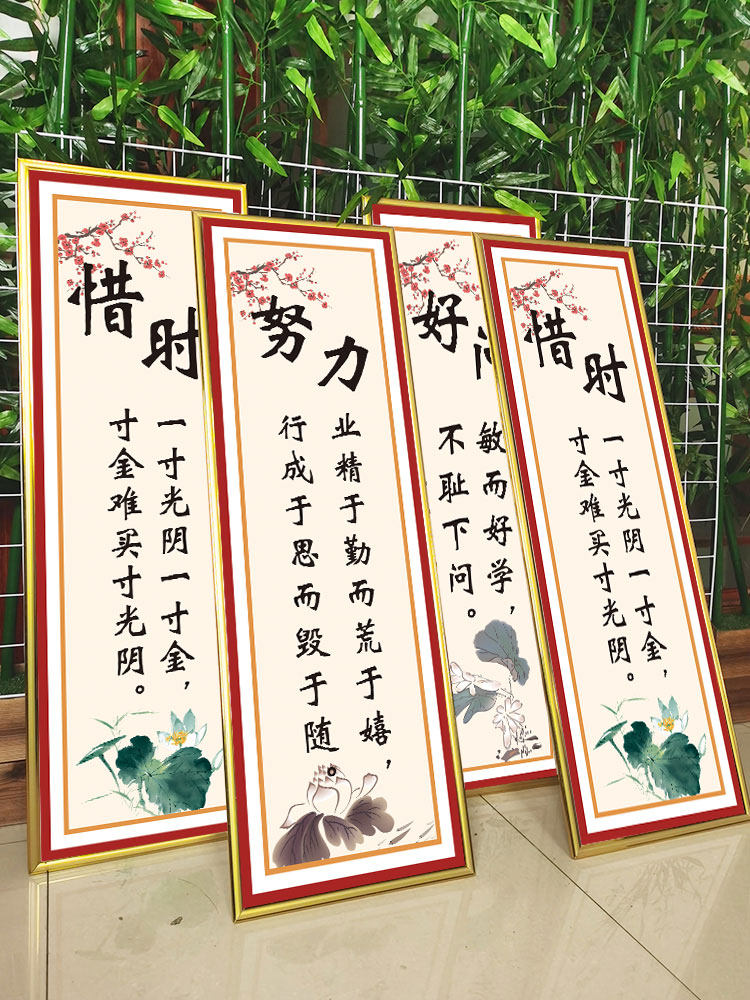 惜时
一寸光阴一寸金，
寸金难买寸光阴。
努力
业精于勤而荒于嬉，
行成于思而毁于随。
好问
敏而好学，
不耻下问。
惜时
一寸光阴一寸金，
寸金难买寸光阴。